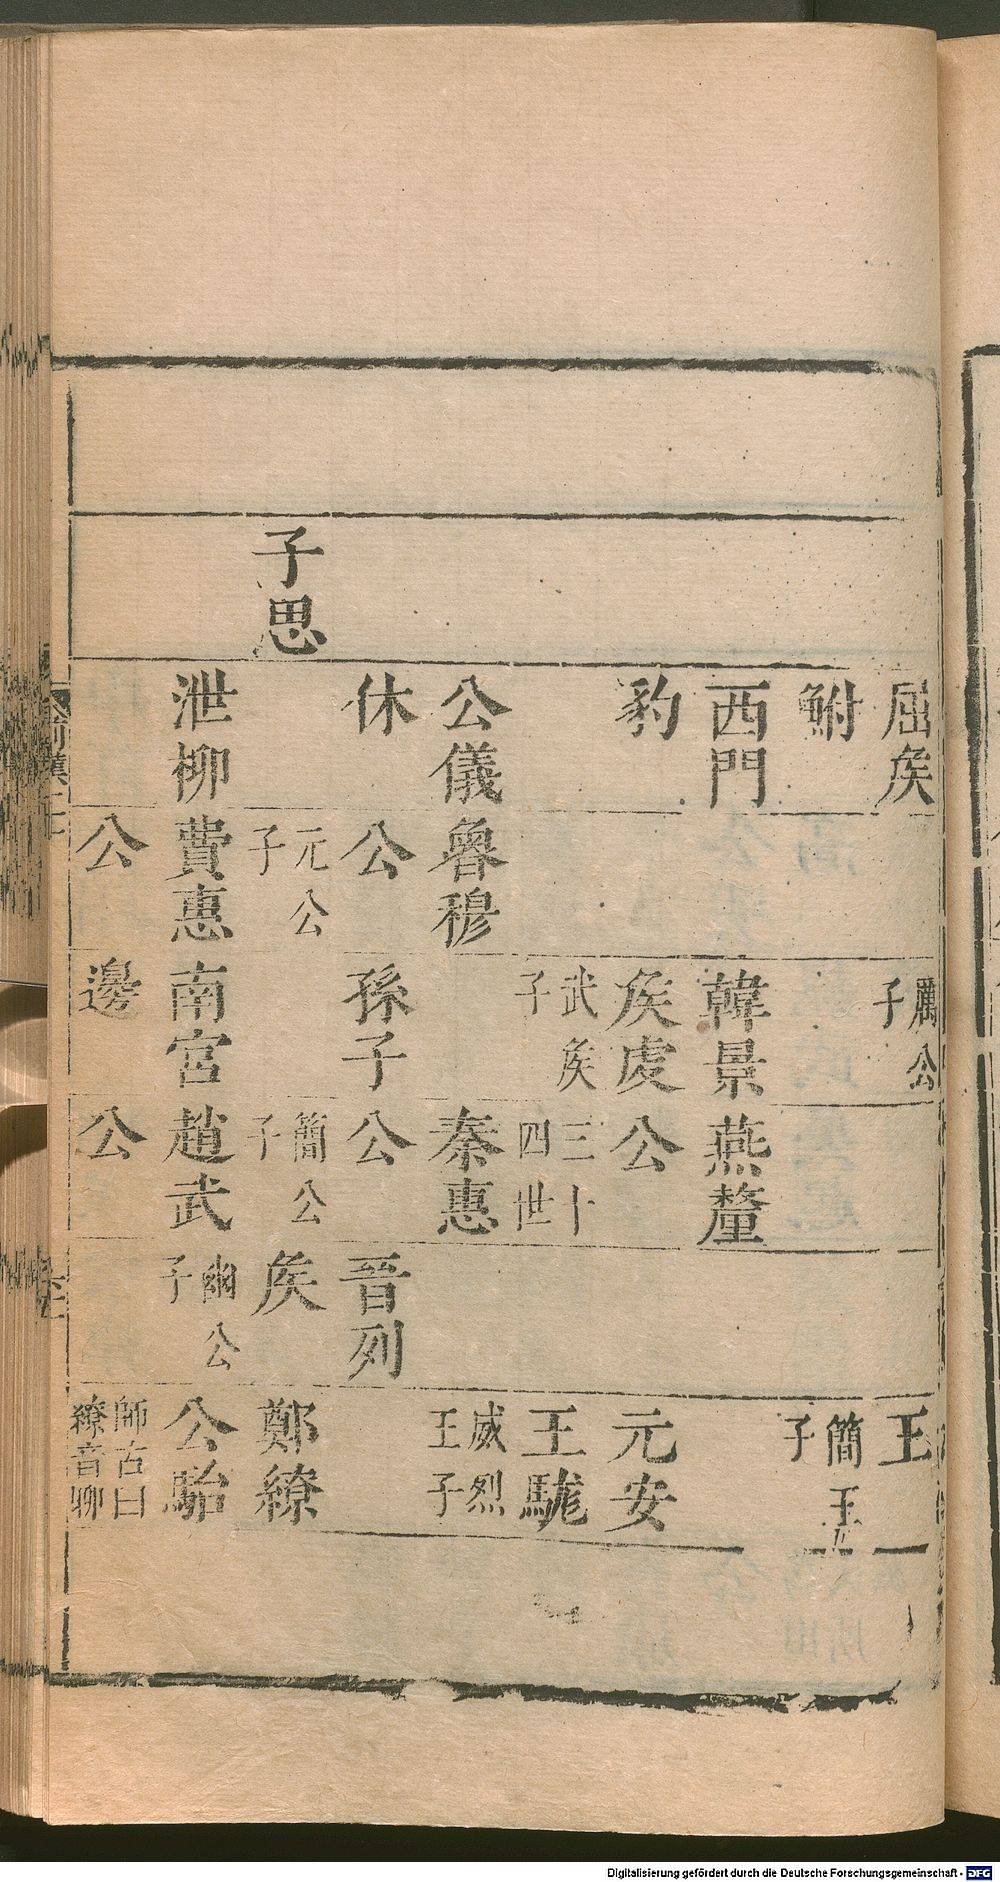 子思
屈矦
鮒
西門
豹
公儀
休
泄柳
魯穆
公
元公
子
費惠
公
厲公
子
韓景
矦虔
武矦
子
孫子
南宮
邊
燕釐
公
三十
四世
秦惠
公
簡公
子
趙武
公
晉列
矦
幽公
子
王
簡王
子
元安
王駹
威烈
王子
鄭繚
公駘
師古曰
繚音聊
Digitalisierung gefördert durch die Deutsche Forschungsgemeinschaft - DFG